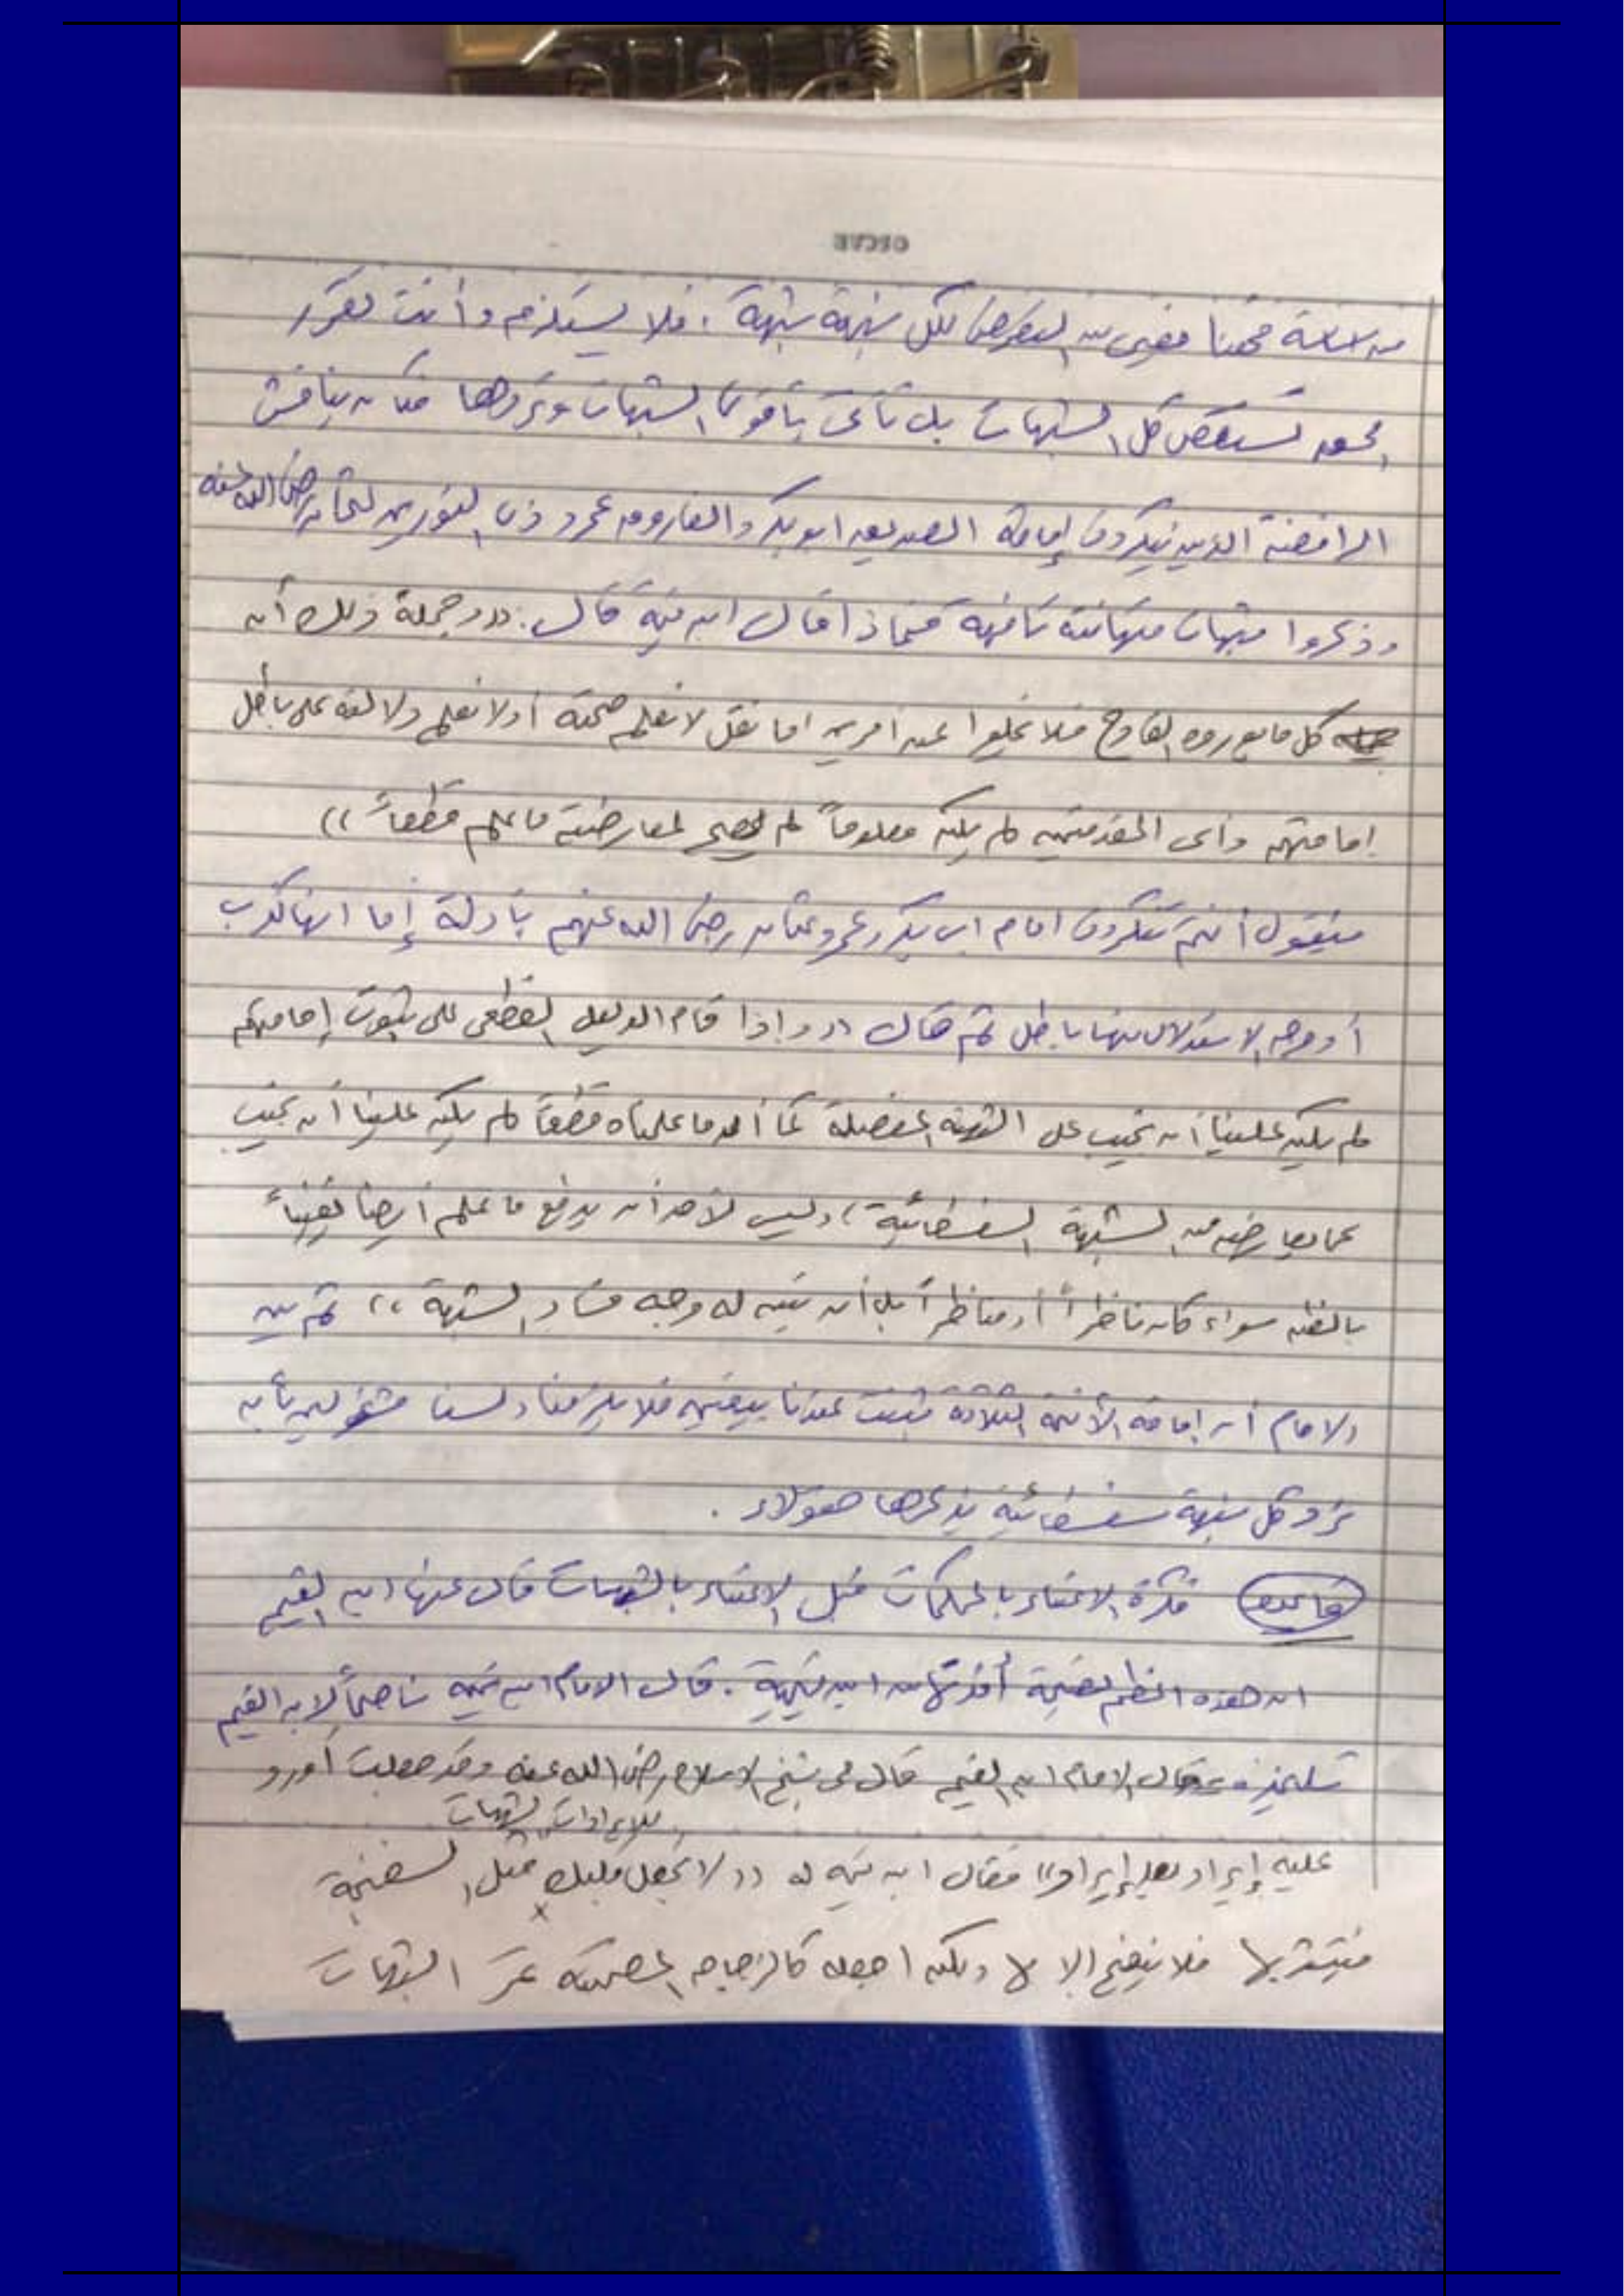 OSCAR
لكل شبهة شبهة . فلا يستلزم وأنت تقرر
الحق تستقصى كل الشبهات بل تأتى بأقوى الشبهات وتردها فكان يناقش
الرافضة الذين ينكرون إمامة الصديق ابوبكر والفاروق عمر وذى النورين عثمان رضى الله عنه
وذكروا شبهات متهافتة تافهة فماذا قال ابن تيمية قال: ((وجملة ذلك أن
كل ما يورده القادح فلا يخلوا عن امرين اما نقل لا نعلم صحته أو لا نعلم دلالته على باطل
إمامتهم وأى المقدمتين لم يكن معلوماً لم يصلح لمعارضته ما علم قطعاً))
فيقول أنتم تنكرون امام ابى بكر وعمر وعثمان رضى الله عنهم بأدلة إما انها كذب
أو وجه الاستدلال منها باطل ثم قال ((وإذا قام الدليل القطعى على ثبوت إمامتهم
لم يكن علينا أن نجيب على الشبه المفصلة كما أن ما علمناه قطعاً لم يكن علينا أن نجيب
عما يعارضه من الشبهة السفسطائية، وليس لأحد أن يدفع ما علم أيضا يقيناً
بالظن سواء كان ناظراً أو مناظراً بل أن تبين له وجه فساد الشبهة)) ثم بين
الامام أن إمامة الأئمة الثلاثة ثبتت عندنا بيقين فلا يلزمنا ولسنا مشغولين بأن
نرد كل شبهة سفسطائية يذكرها هؤلاء .
قاعدة فكرة الاعتناء بالمحكمات قبل الاعتناء بالشبهات قال عنها ابن القيم
ان هذه أخذتها من ابن تيمية . قال الامام ابن تيمية ناصحاً لابن القيم
تلميذه قال الامام ابن القيم قال لى شيخ الاسلام رضى الله عنه وقد جعلت أورد
للايرادات والشبهات
عليه إيراد بعد إيراد)) فقال ابن تيمية له ((لا تجعل قلبك مثل السفنجة
فيتشربها فلا ينضح إلا بها ولكن اجعله كالزجاجه المصمته تمر الشبهات